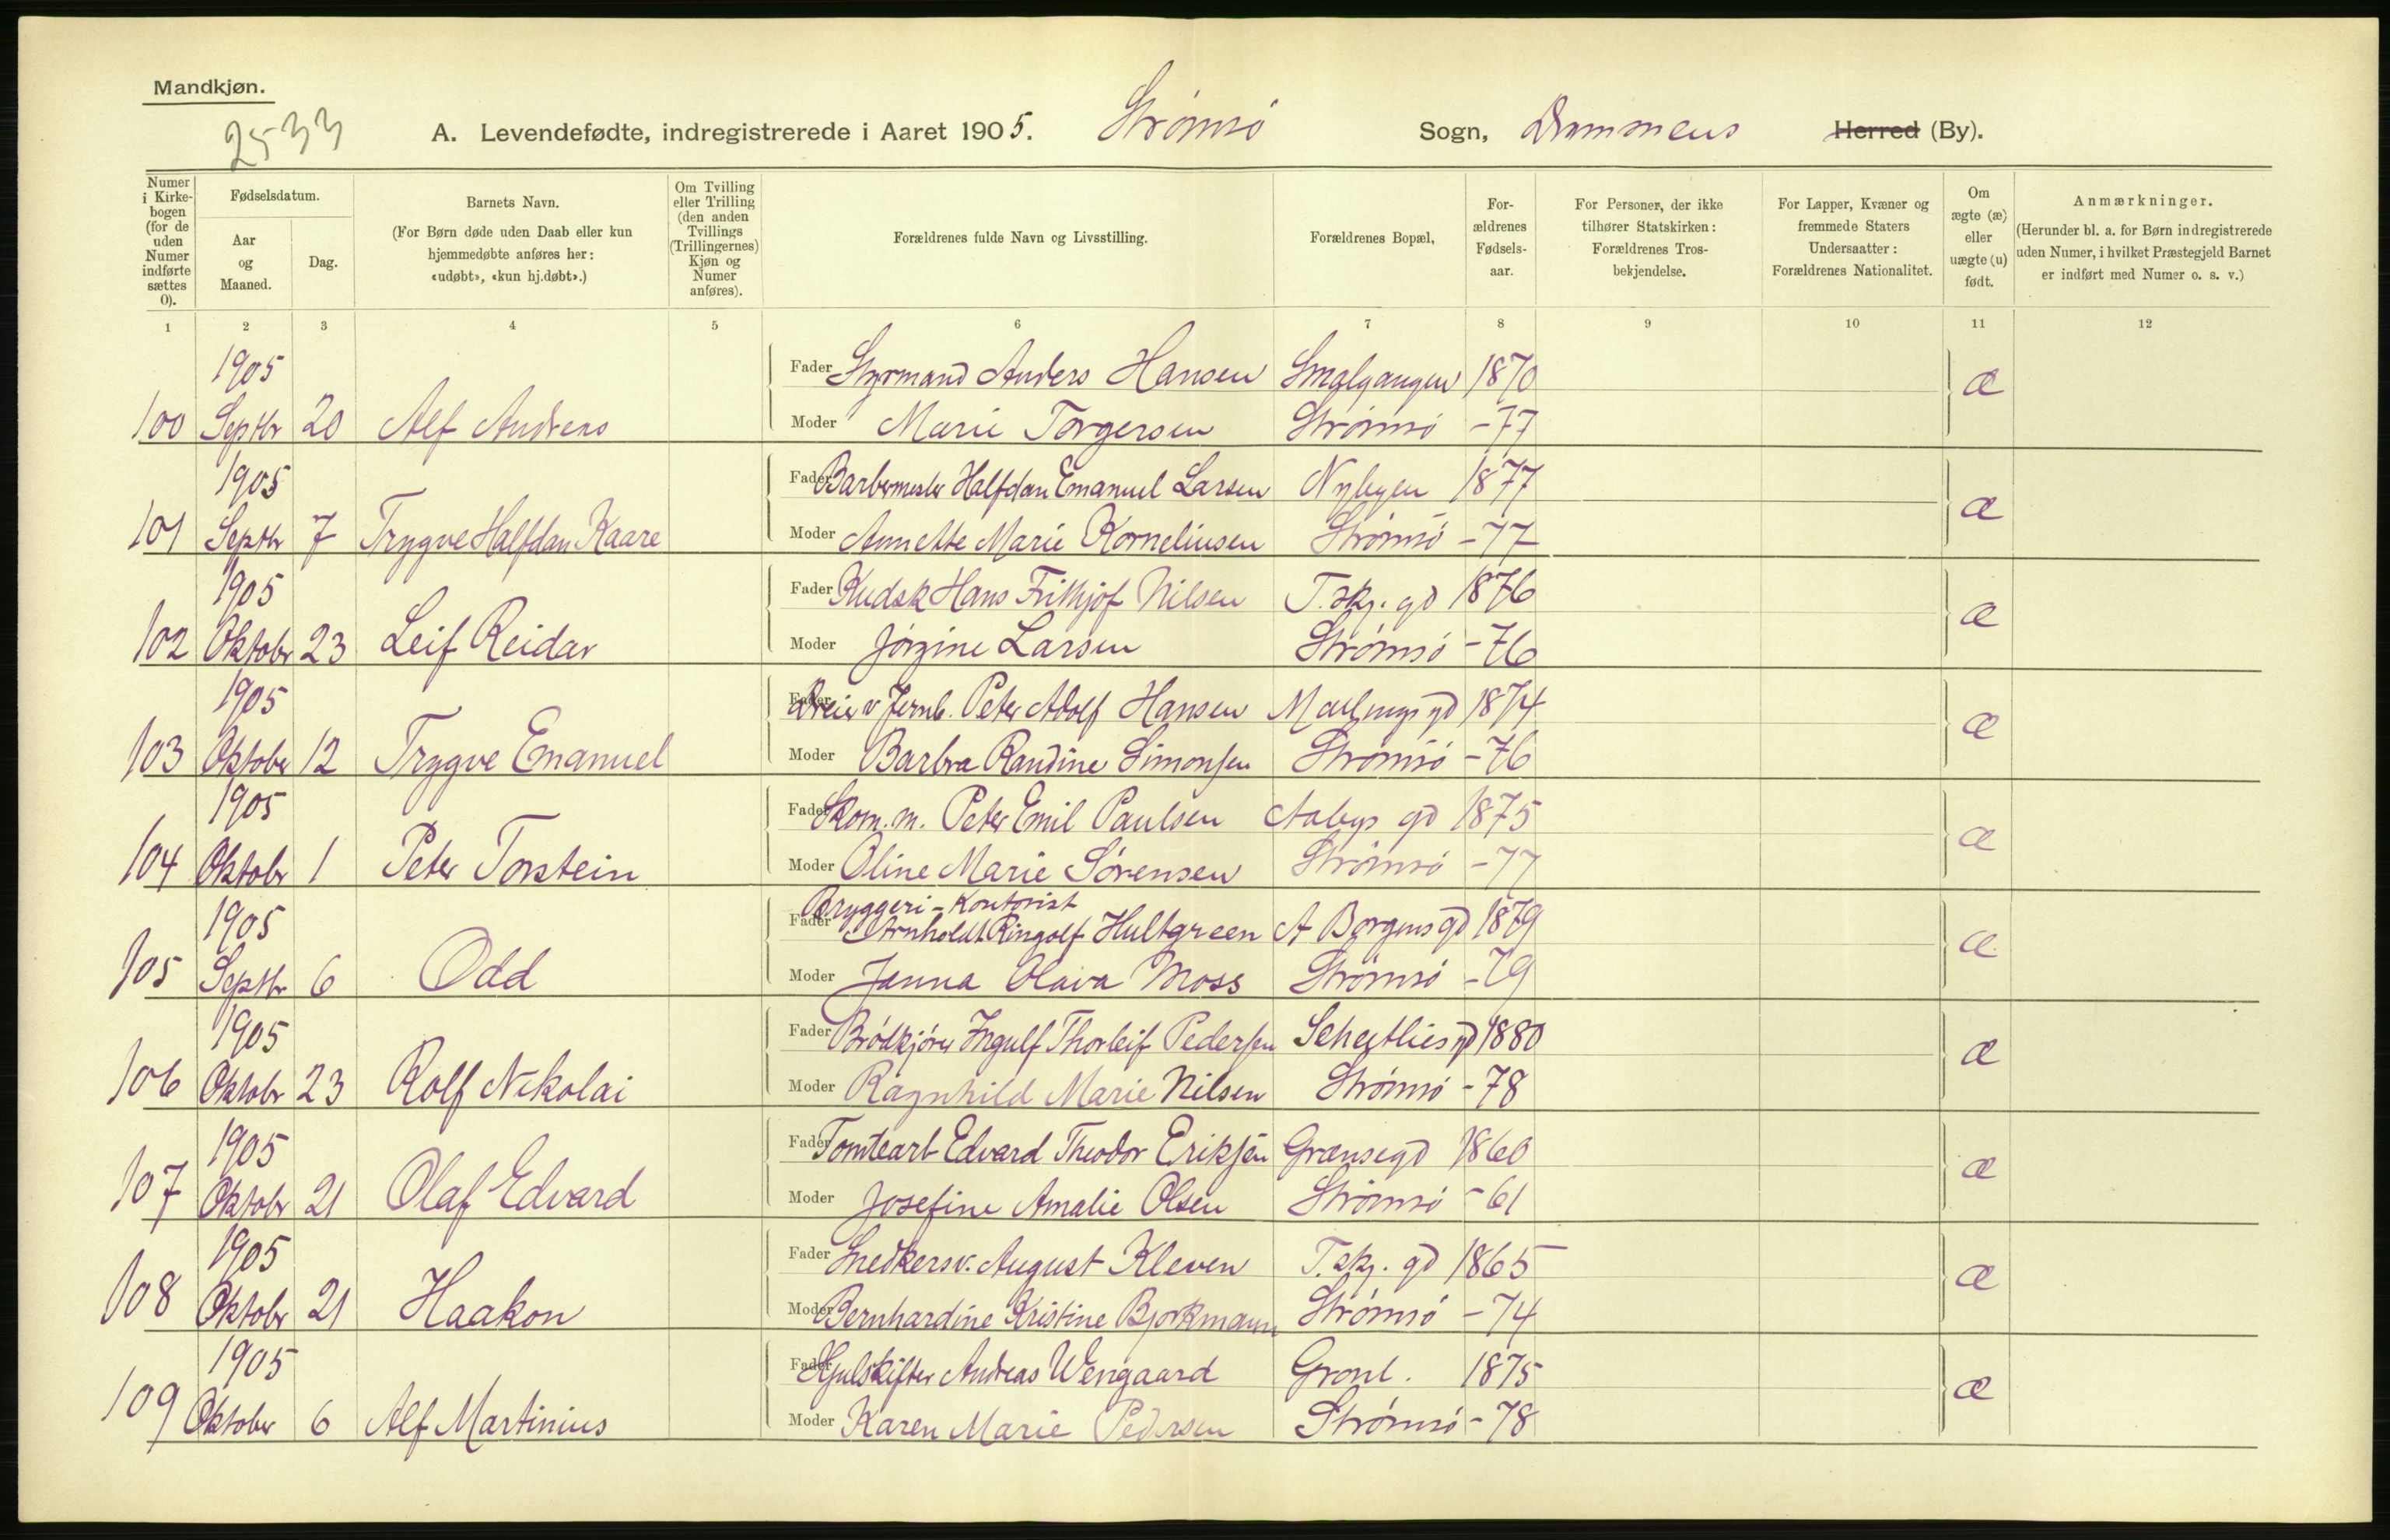 Mandkjøn.
2533
A. Levendefødte, indregistrerede i Aaret 1905. Strømsø Sogn, Drammens Herred (By).
Numer i Kirkebogen (for de uden Numer indførte sættes 0).
Fødselsdatum.
Aar og Maaned.
Dag.
Barnets Navn.
(For Børn døde uden Daab eller kun hjemmedøbte anføres her: «udøbt», «kun hj.døbt».)
Om Tvilling eller Trilling (den anden Tvillings (Trillingernes) Kjøn og Numer anføres).
Forældrenes fulde Navn og Livsstilling.
Forældrenes Bopæl,
Forældrenes Fødselsaar.
For Personer, der ikke tilhører Statskirken: Forældrenes Trosbekjendelse.
For Lapper, Kvæner og fremmede Staters Undersaatter: Forældrenes Nationalitet.
Om ægte (æ) eller uægte (u) født.
Anmærkninger.
(Herunder bl. a. for Børn indregistrerede uden Numer, i hvilket Præstegjeld Barnet er indført med Numer o. s. v.)
1 2 3 4 5 6 7 8 9 10 11 12
1905 Fader Styrmand Anders Hansen Smalgangen 1870 æ
100 Septbr 20 Alf Andreas Moder Marie Torgersen Strømsø -77
1905 Fader Barbermester Halfdan Emanuel Larsen Nybyen 1877 æ
101 Septbr 7 Trygve Halfdan Kaare Moder Annette Marie Korneliusen Strømsø -77
1905 Fader Kudsk Hans Frithjof Nilsen T.skj. gd 1876 æ
102 Oktobr 23 Leif Reidar Moder Jørgine Larsen Strømsø -76
1905 Fader v Jernb. Peter Adolf Hansen gd 1874 æ
103 Oktober 12 Trygve Emanuel Moder Barbra Randine Simonsen Strømsø -76
1905 Fader Skom.m. Peter Emil Paulsen Aabys gd 1875 æ
104 Oktobr 1 Peter Torstein Moder Oline Marie Sørensen Strømsø -77
Bryggeri-Kontorist
1905 Fader Arnholdt Ringolf Hultgreen A Borgens gd 1879 æ
105 Septbr 6 Odd Moder Janna Olava Moss Strømsø -79
1905 Fader Brødkjører Ingulf Thorleif Pedersen Schertlies gd 1880 æ
106 Oktobr 23 Rolf Nikolai Moder Ragnhild Marie Nilsen Strømsø -78
1905 Fader Tomtearb Edvard Theodor Eriksen Grænsegd 1860 æ
107 Oktobr 21 Olaf Edvard Moder Josefine Amalie Olsen Strømsø -61
1905 Fader Snedkersv. August Kleven T.skj. gd 1865 æ
108 Oktobr 21 Haakon Moder Bernhardine Kristine Bjorkmann Strømsø -74
1905 Fader Hjulskifter Andreas Wengaard Gronl. 1875 æ
109 Oktober 6 Alf Martinius Moder Karen Marie Pedersen Strømsø -78